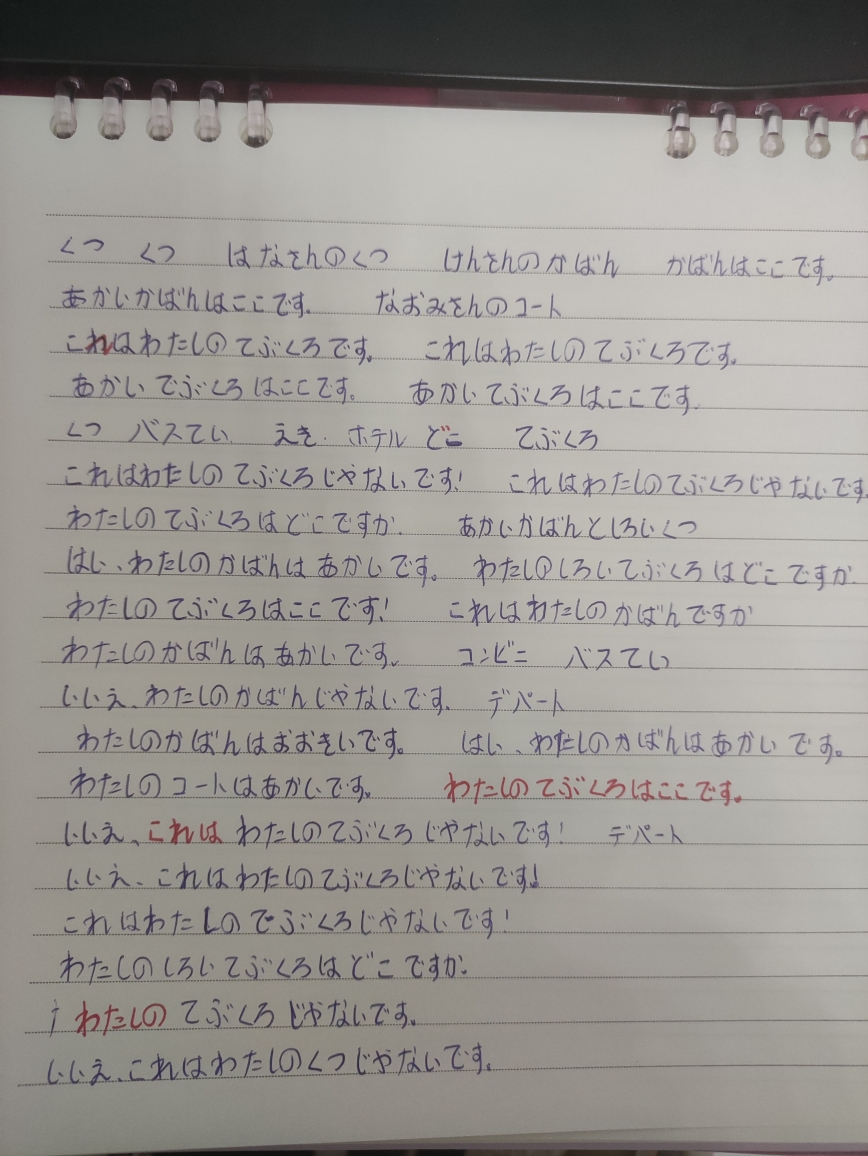 くつ くつ はなさんのくつ けんさんのかばん かばんはここです。
あかいかばんはここです. なおみさんのコート
これはわたしのてぶくろです。 これはわたしのてぶくろです。
あかいでぶくろはここです。 あかいてぶくろはここです.
くつ バスてい えき. ホテル どこ てぶくろ
これはわたしのてぶくろじゃないです! これはわたしのてぶくろじゃないです
わたしのてぶくろはどこですか. あかいかばんとしろいくつ
はい、わたしのかばんはあかいです。 わたしのしろいてぶくろはどこですか.
わたしのてぶくろはここです! これはわたしのかばんですか
わたしのかばんはあかいです. コンビニ バスてい
いいえ、わたしのかばんじゃないです. デパート
わたしのかばんはおおきいです。 はい、わたしのかばんはあかいです。
わたしのコートはあかいです。 わたしのてぶくろはここです。
いいえ、これはわたしのてぶくろじゃないです! デパート
いいえ、これはわたしのてぶくろじゃないです!
これはわたしのでぶくろじゃないです!
わたしのしろいてぶくろはどこですか.
わたしのてぶくろじゃないです。
いいえ、これはわたしのくつじゃないです。